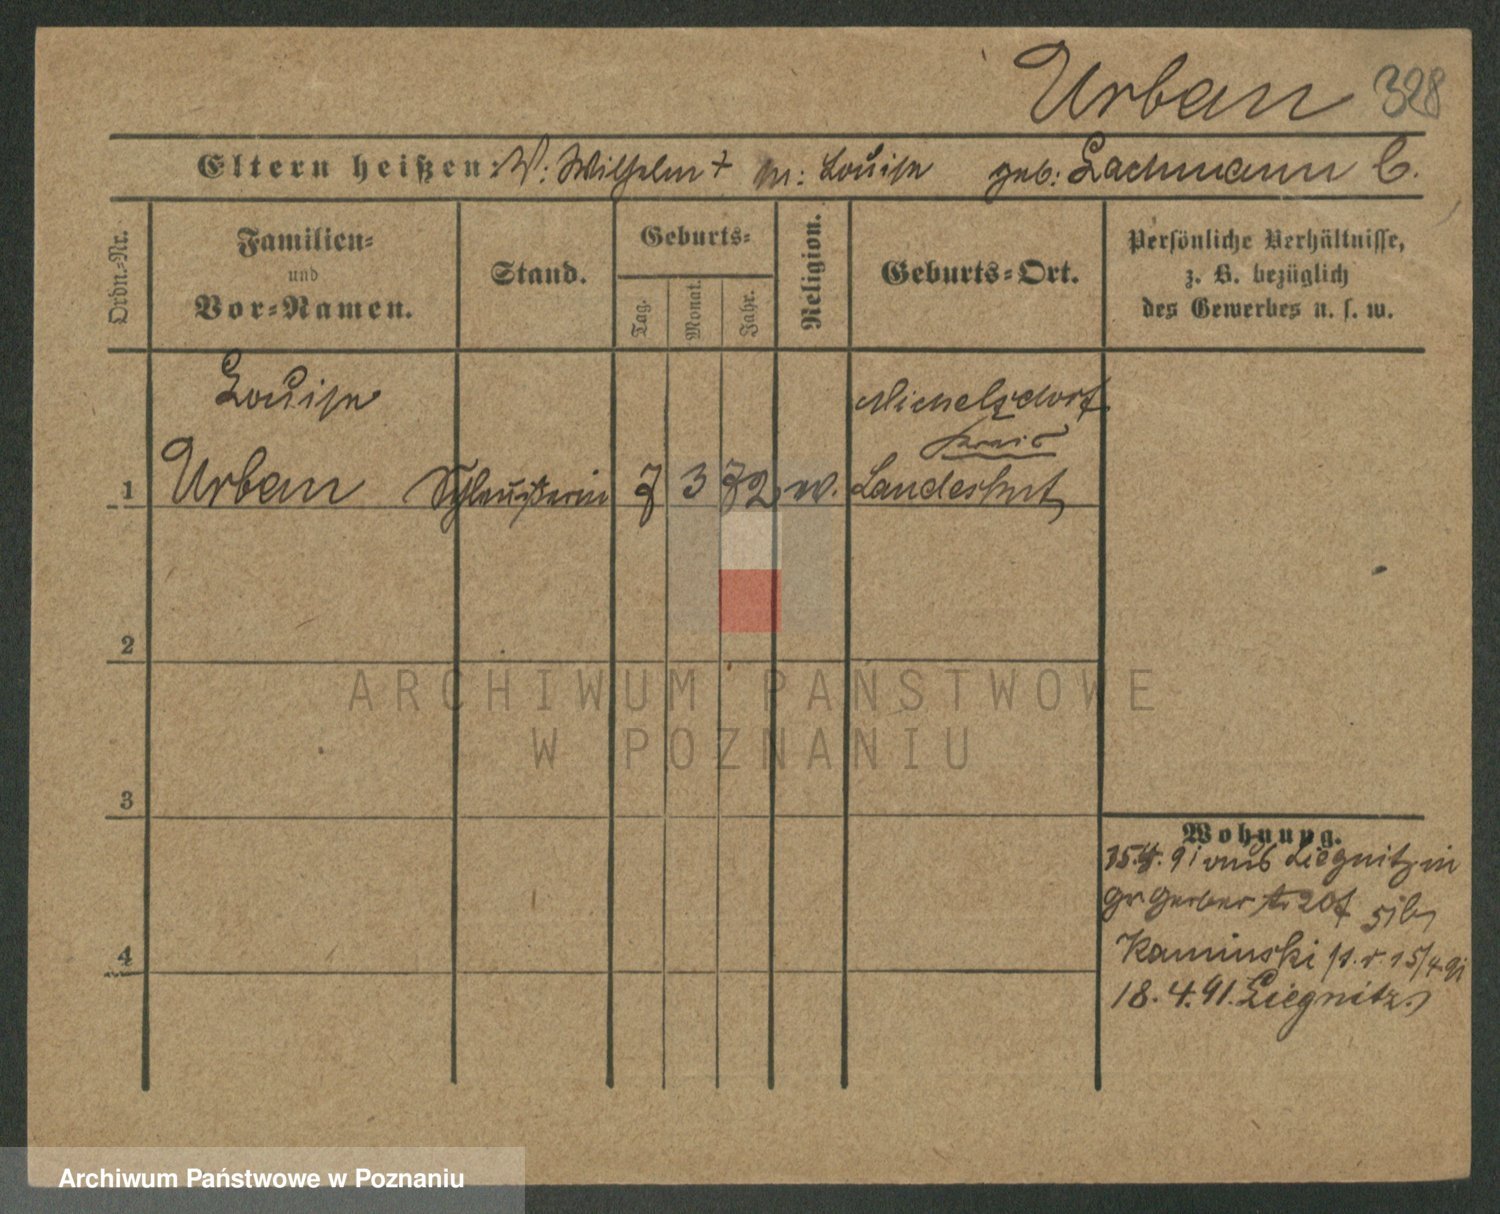 Urban 328
Eltern heißen: V: Wilhelm † M: Louise geb: Lachmann C.
Ordn.-Nr.
Familien-
und
Vor-Namen.
Stand.
Geburts-
Tag.
Monat.
Jahr.
Religion.
Geburts-Ort.
Persönliche Verhältnisse,
z. B. bezüglich
des Gewerbes u. s. w.
Louise
Urban
Michelsdorf
Kreis
Landeshut
1
7 3 72
2
ARCHIWUM PAŃSTWOWE
W POZNANIU
3
Wohnung.
15.4.91 aus Liegnitz in
gr Gerber str 20
Kaminski 15/4 91
4
18.4.91. Liegnitz
Archiwum Państwowe w Poznaniu